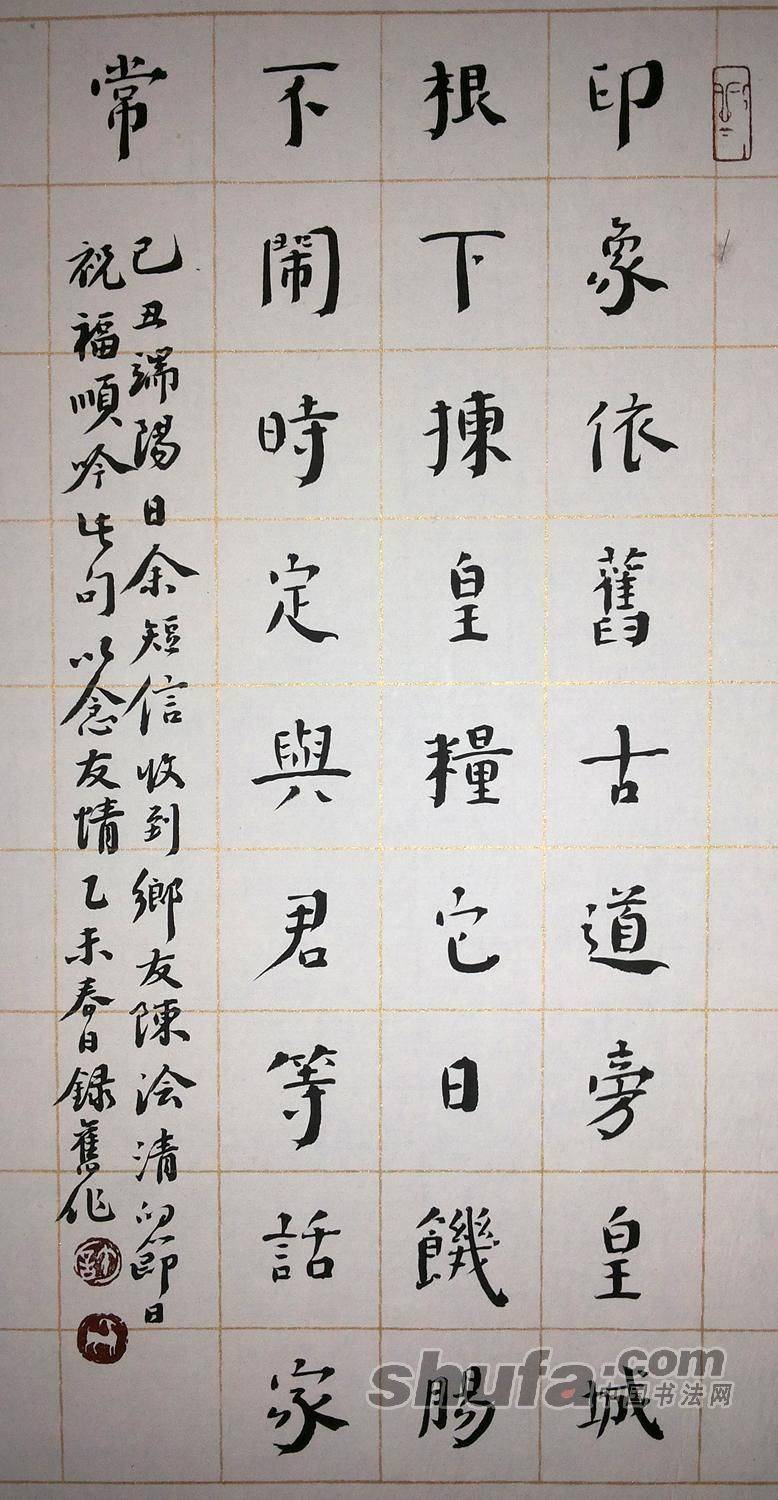 印象依舊古道旁皇城
根下揀皇糧它日饑腸
不鬧時定與君等話家
常
己丑端陽日余短信收到鄉友陳淦清的節日
祝福順吟此句以念友情乙未春日録舊作
shufa.com
中国书法网